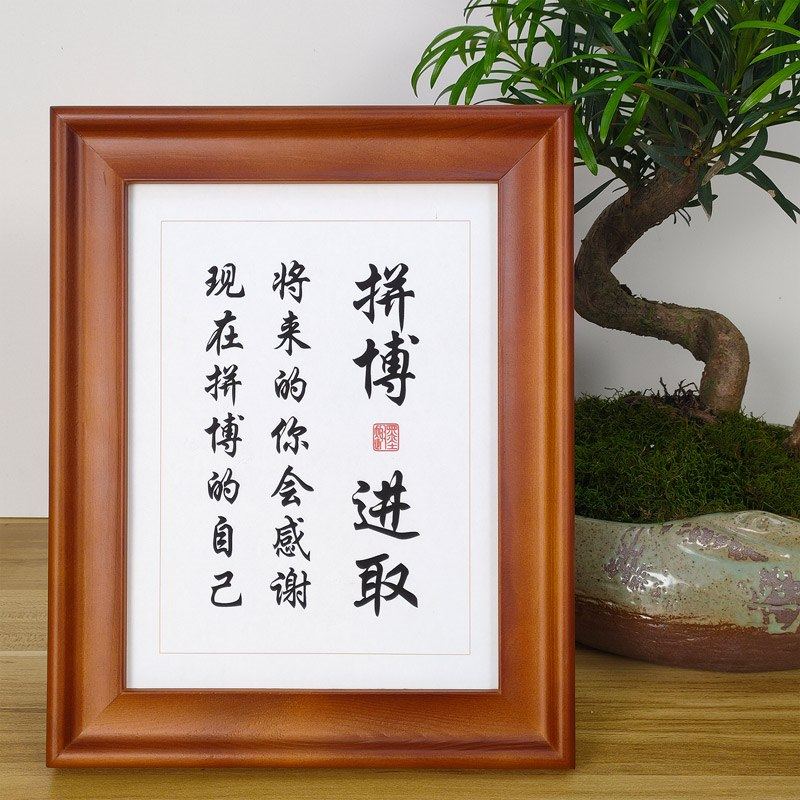 拼博
进取
将来的你会感谢
现在拼博的自己